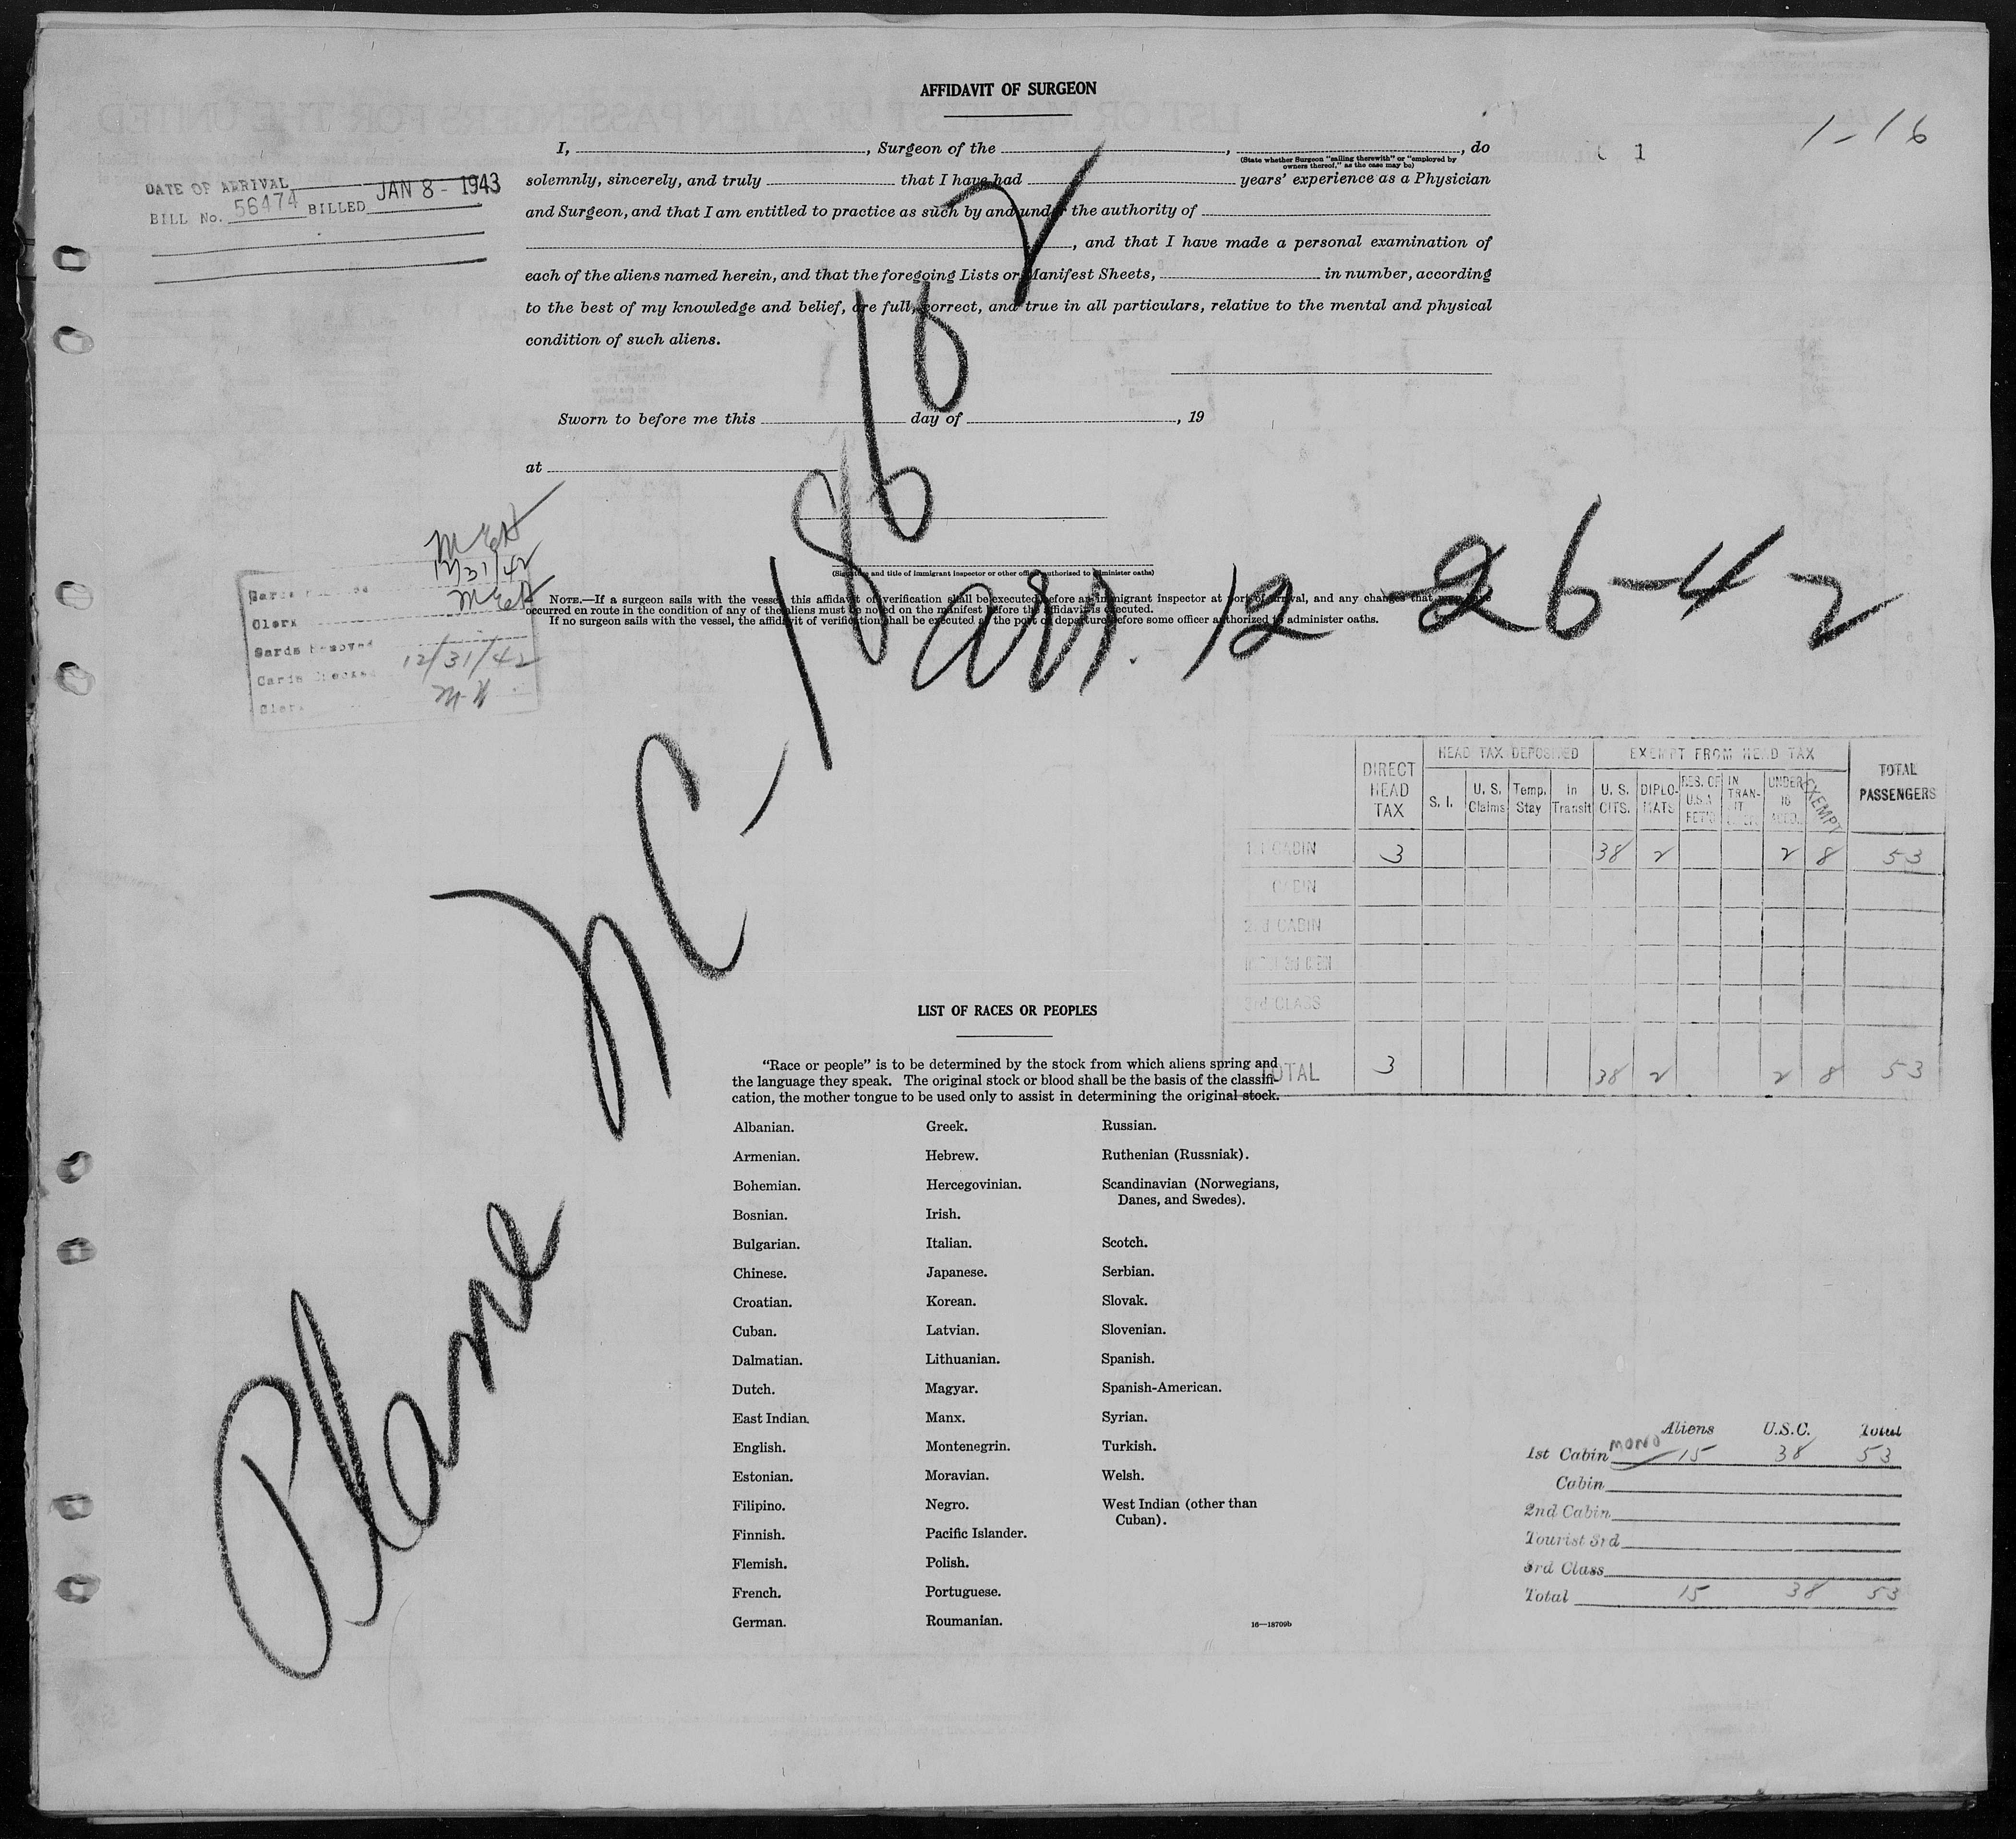 AFFIDAVIT OF SURGEON
1-16
1
I, , Surgeon of the , , do
(State whether Surgeon "sailing therewith" or "employed by
owners thereof," as the case may be)
solemnly, sincerely, and truly that I have had years' experience as a Physician
and Surgeon, and that I am entitled to practice as such by and under the authority of
, and that I have made a personal examination of
each of the aliens named herein, and that the foregoing Lists or Manifest Sheets, in number, according
to the best of my knowledge and belief, are full, correct, and true in all particulars, relative to the mental and physical
condition of such aliens.
Sworn to before me this day of , 19
at
(Signature and title of immigrant inspector or other officer authorized to administer oaths)
NOTE.—If a surgeon sails with the vessel, this affidavit of verification shall be executed before an immigrant inspector at port of arrival, and any changes that may have
occurred en route in the condition of any of the aliens must be noted on the manifest before the affidavit is executed.
If no surgeon sails with the vessel, the affidavit of verification shall be executed at the port of departure before some officer authorized to administer oaths.
DATE OF ARRIVAL
BILL No. 56474 BILLED JAN 8 - 1943
12/31/42
Clerk
Cards Removed
Cards Checked 12/31/42
Clerk
Plane NC-18612
arr. 12-26-42
DIRECT HEAD TAX
HEAD TAX DEPOSITED
EXEMPT FROM HEAD TAX
TOTAL PASSENGERS
S. I. U. S. Claims Temp. Stay In Transit U. S. CITS. DIPLO-MATS RES. OF U.S.A. RET'G IN TRAN-SIT UNDER 16 ACCD. EXEMPT
1st CABIN 3 38 2 2 8 53
CABIN
2nd CABIN
3rd CLASS
TOTAL 3 38 2 2 8 53
LIST OF RACES OR PEOPLES
"Race or people" is to be determined by the stock from which aliens spring and
the language they speak. The original stock or blood shall be the basis of the classifi-
cation, the mother tongue to be used only to assist in determining the original stock.
Albanian.
Armenian.
Bohemian.
Bosnian.
Bulgarian.
Chinese.
Croatian.
Cuban.
Dalmatian.
Dutch.
East Indian.
English.
Estonian.
Filipino.
Finnish.
Flemish.
French.
German.
Greek.
Hebrew.
Hercegovinian.
Irish.
Italian.
Japanese.
Korean.
Latvian.
Lithuanian.
Magyar.
Manx.
Montenegrin.
Moravian.
Negro.
Pacific Islander.
Polish.
Portuguese.
Roumanian.
Russian.
Ruthenian (Russniak).
Scandinavian (Norwegians,
Danes, and Swedes).
Scotch.
Serbian.
Slovak.
Slovenian.
Spanish.
Spanish-American.
Syrian.
Turkish.
Welsh.
West Indian (other than
Cuban).
16—18709b
Aliens U.S.C. Total
1st Cabin MONO 15 38 53
Cabin
2nd Cabin
Tourist 3rd
3rd Class
Total 15 38 53